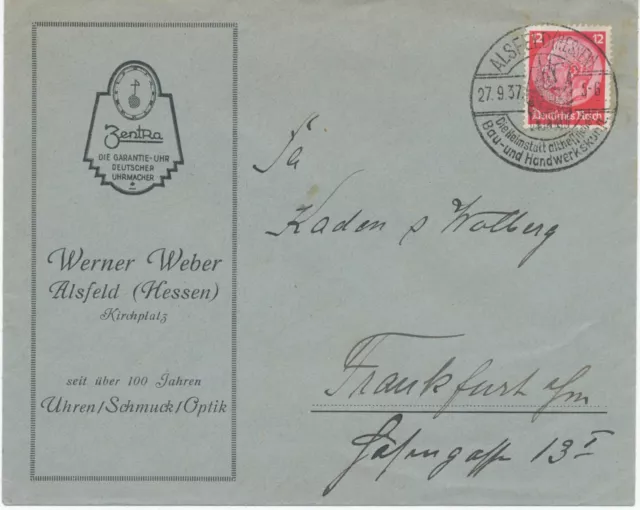 Zentra
DIE GARANTIE-UHR
DEUTSCHER
UHRMACHER
Werner Weber
Alsfeld (Hessen)
Kirchplatz
seit über 100 Jahren
Uhren/Schmuck/Optik
12 12
Deutsches Reich
ALSFELD (HESSEN)
27.9.37.
Die Heimstatt althess.
Bau- und Handwerkskunst
Fa
Kaden & Wolberg
Frankfurt a/m
13 I